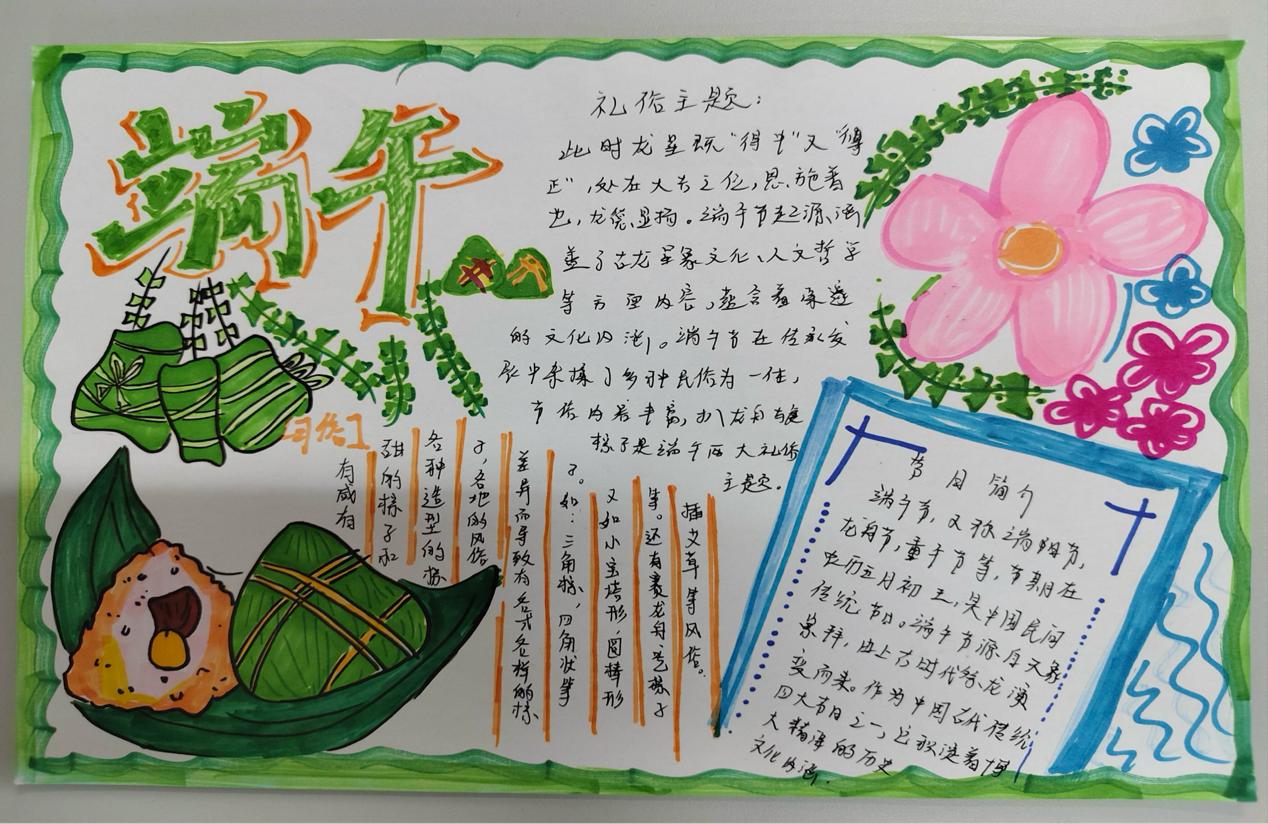 端午
礼俗主题：
此时龙星既"得中"又"得
正"，处在大吉之位，恩施普
也，龙德显扬。端午节起源涵
盖了古龙星象文化、人文哲学
等方面内容，蕴含着深邃
的文化内涵。端午节在传承发
展中杂揉了多种民俗为一体，
节俗内容丰富，扒龙舟与食
粽子是端午两大礼俗
主题。
习俗
有咸有
甜的粽子和
各种造型的粽
子，各地的风俗
差异而导致有各式各样的粽
子。如：三角粽，四角状等
又如小宝塔形，圆棒形
等。还有赛龙舟、吃粽子
插艾草等风俗。
节日简介
端午节，又称端阳节，
龙舟节，重午节等，节期在
农历五月初五，是中国民间
传统节日。端午节源自天象
崇拜，由上古时代祭龙演
变而来。作为中国古代传统
四大节日之一，它积淀着博
大精深的历史
文化内涵。